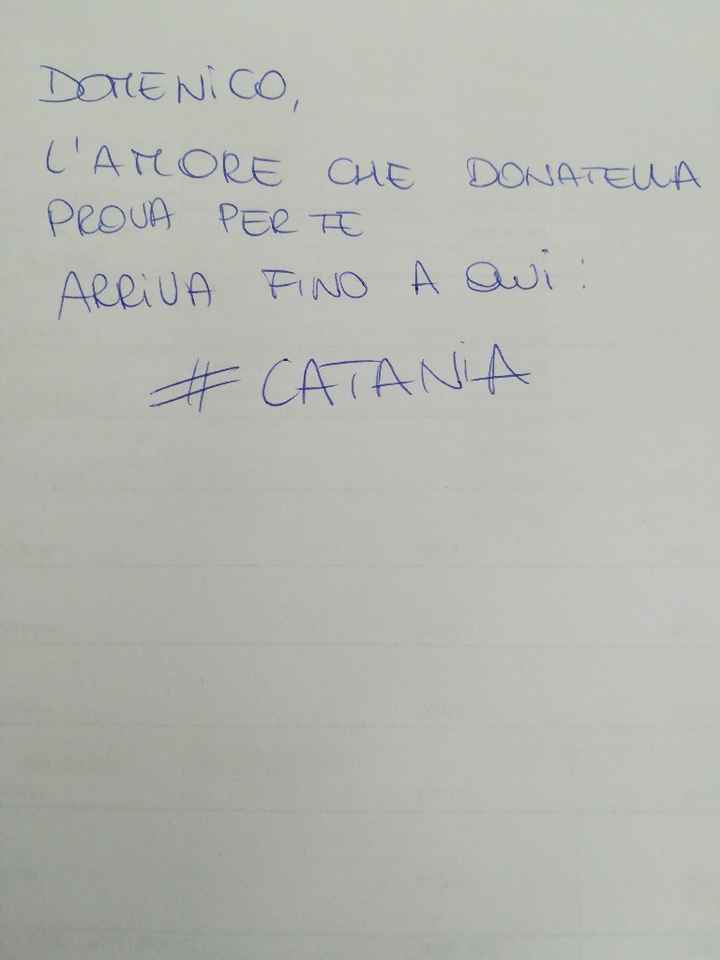 DOMENiCO,
L'AMORE CHE DONATELLA
PROVA PER TE
ARRiVA FINO A QUi:
# CATANiA